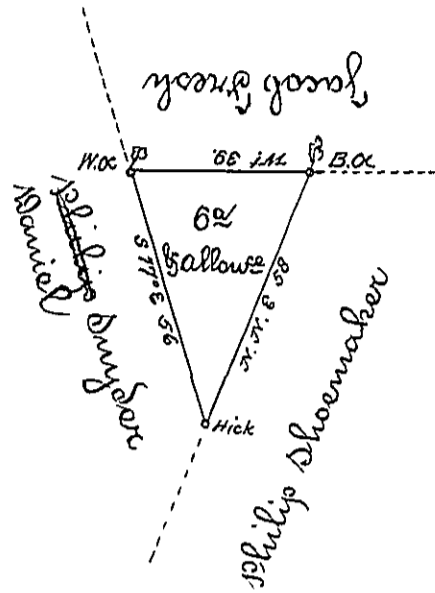 Jacob Gresh
W.O.
B.O.
Wt 39.
9a
& allowce
S 17° E 56
N.N.E 58
Hick
Philip
Daniel Snyder
Philip Shoemaker